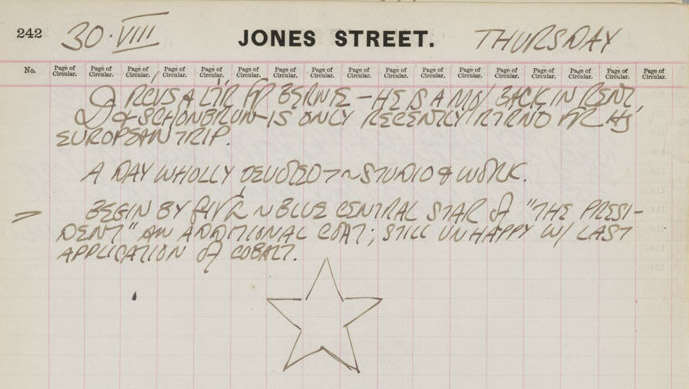 242 30·VIII JONES STREET. THURSDAY
No. Page of Circular. Page of Circular. Page of Circular. Page of Circular. Page of Circular. Page of Circular. Page of Circular. Page of Circular. Page of Circular. Page of Circular. Page of Circular. Page of Circular. Page of Circular. Page of Circular. Page of Circular. Page of Circular. Page of Circular.
RCVS A LTR FR BERNIE – HE IS A MO/ BACK IN KENT,
& SCHONBRUN – IS ONLY RECENTLY RTRND FR HIS
EUROPEAN TRIP.
A DAY WHOLLY DEVOTED STUDIO & WORK.
BEGIN BY GIV'G BLUE CENTRAL STAR OF "THE PRESI-
DENT" AN ADDITIONAL COAT; STILL UNHAPPY W/ LAST
APPLICATION OF COBALT.